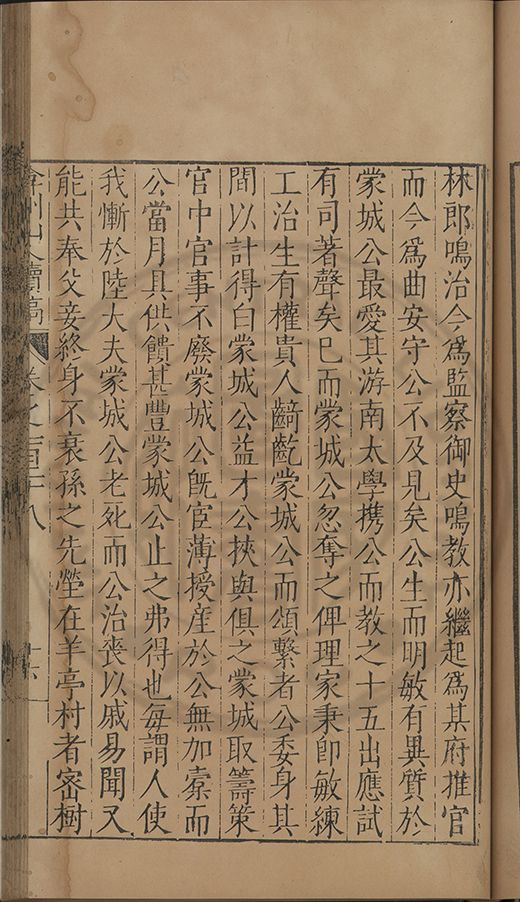 林郎鳴治今爲監察御史鳴教亦繼起爲其府推官
而今爲曲安守公不及見矣公生而明敏有異質於
蒙城公最愛其游南太學携公而教之十五出應試
有司著聲矣已而蒙城公忽奪之俾理家秉卽敏練
工治生有權貴人齮齕蒙城公而頌繫者公委身其
間以計得白蒙城公益才公挾與俱之蒙城取籌策
官中官事不廢蒙城公旣官薄授産於公無加橐而
公當月具供饋甚豐蒙城公止之弗得也每謂人使
我慚於陸大夫蒙城公老死而公治喪以戚易聞又
能共奉父妾終身不衰孫之先塋在羊亭村者密樹
弇州山人續稿 卷之一百二十八
十六